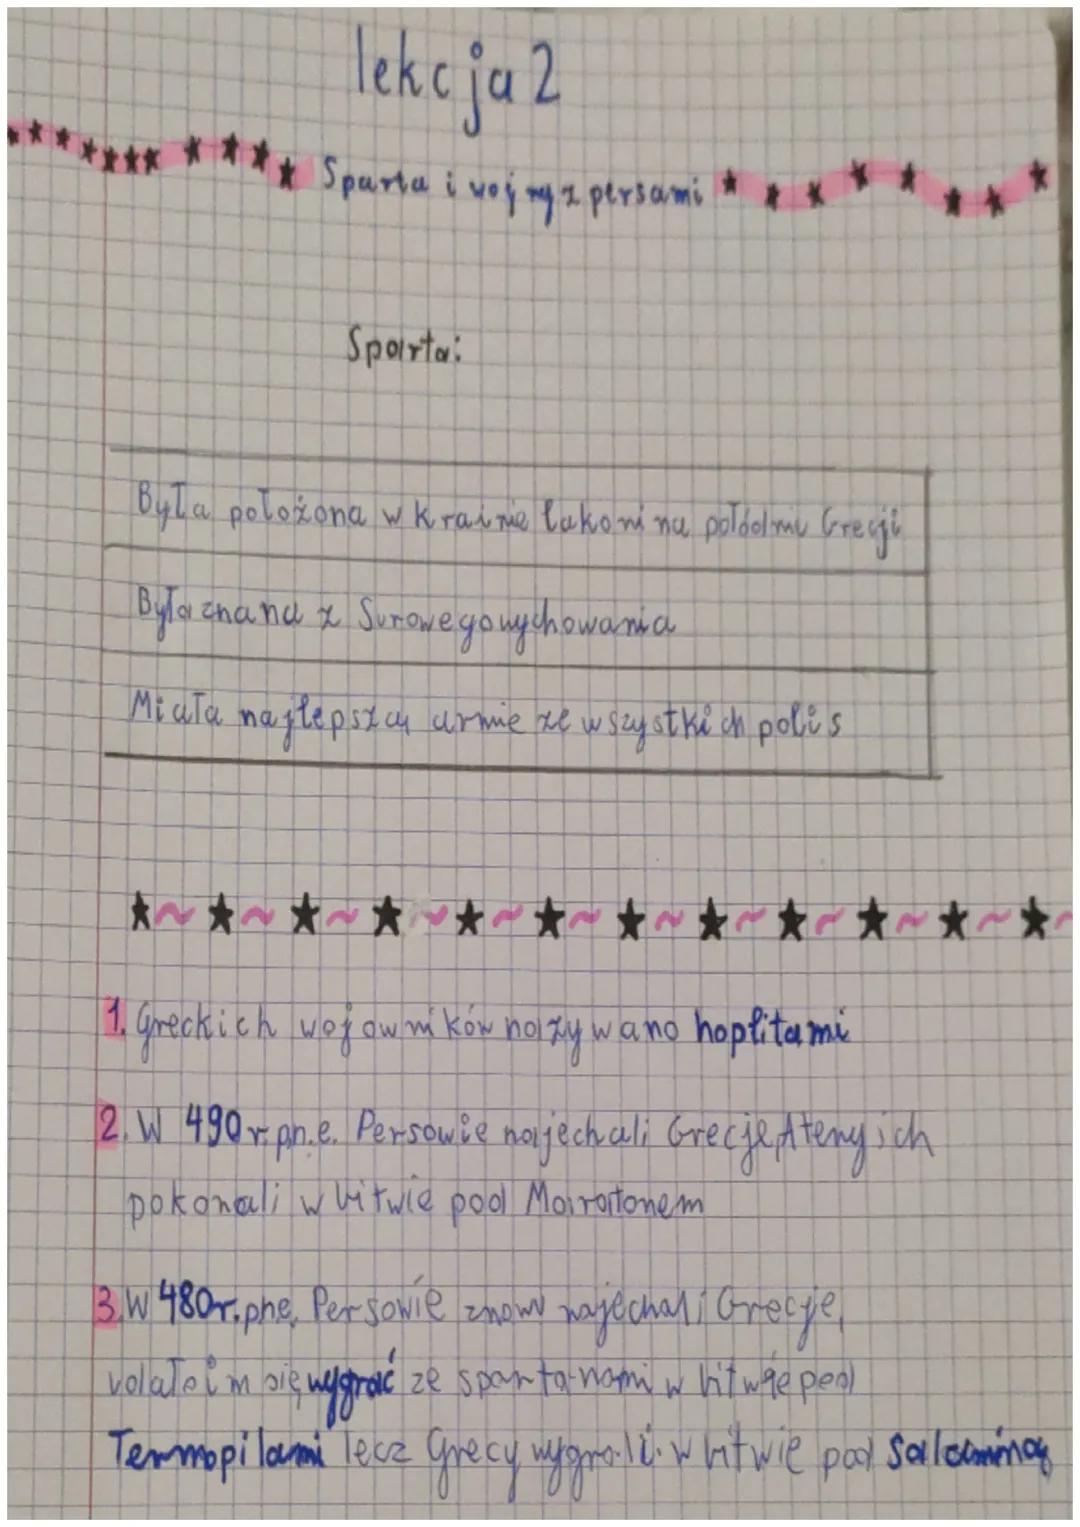 lekcja 2
Sparta i wojny z persami
Sparta:
Była położona w krainie lakoni na połódniu Grecji
Była znana z Surowego wychowania
Miała najlepszą armie ze wszystkich polis
1. Greckich wojowników nazywano hoplitami
2. W 490 r. p.n.e. Persowie najechali Grecje, Ateny ich
pokonali w bitwie pod Maratonem
3. W 480 r. pne, Persowie znowu najechali Grecje,
udało im się wygrać ze spartanami w bitwie pod
Termopilami lecz Grecy wygrali w bitwie pod Salaminą